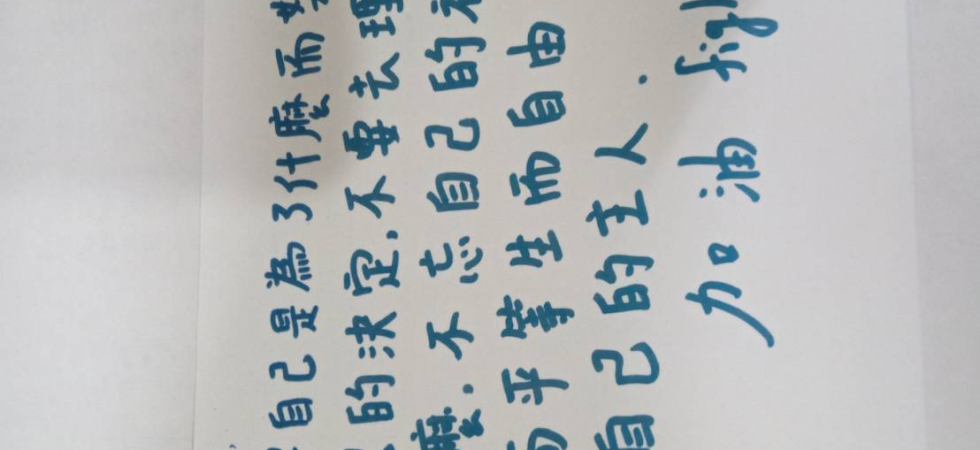 自己是為了什麼而
的決定,不要去理
麼.不忘自己的
平等生而自由
自己的主人.
加油 fig